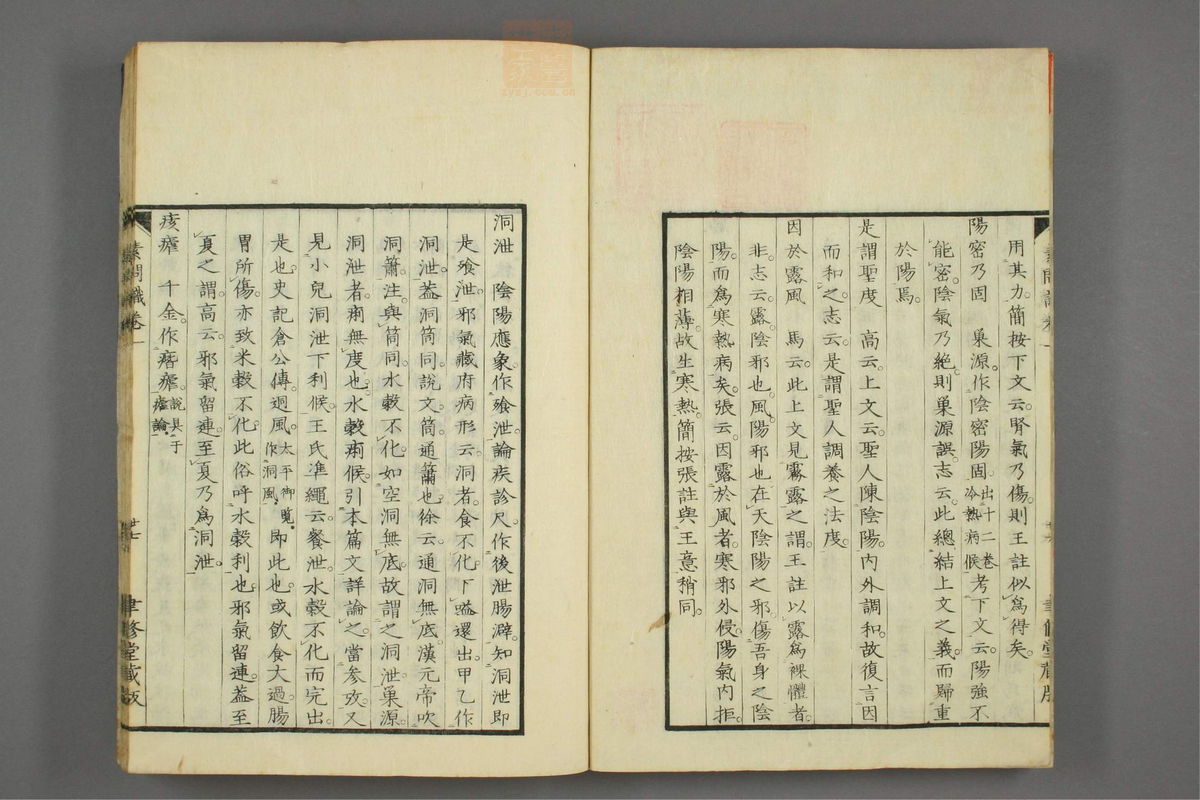 用其力。簡按下文云。腎氣乃傷。則王註似爲得矣。
陽密乃固　巢源作陰密陽固。出十二卷冷熱病候考下文云。陽強不
能密。陰氣乃絕。則巢源誤。志云。此總結上文之義。而歸重
於陽焉。
是謂聖度　高云。上文云。聖人陳陰陽。內外調和。故復言因
而和之。志云。是謂聖人調養之法度。
因於露風　馬云。此上文見霧露之謂。王註以露爲裸體者。
非。志云。露。陰邪也。風。陽邪也。在天陰陽之邪。傷吾身之陰
陽。而爲寒熱病矣。張云。因露於風者。寒邪外侵。陽氣內拒。
陰陽相薄。故生寒熱。簡按張註與王意稍同。
洞泄　陰陽應象。作飧泄。論疾診尺。作後泄腸澼。知洞泄即
是飧泄。邪氣藏府病形云。洞者。食不化。下嗌還出。甲乙作
洞泄。蓋洞筒同。說文。筒。通簫也。徐云。通洞無底。漢元帝吹
洞簫。注與筒同。水穀不化。如空洞無底。故謂之洞泄。巢源
洞泄者。痢無度也。水穀痢候。引本篇文詳論之。當參攷。又
見小兒洞泄下利候。王氏準繩云。餐泄。水穀不化而完出。
是也。史記倉公傳。迵風。太平御覽。作洞風。即此也。或飲食大過。腸
胃所傷。亦致米穀不化。此俗呼水穀利也。邪氣留連。蓋至
夏之謂。高云。邪氣留連至夏。乃爲洞泄。
痎瘧　千金。作㾬瘧。說具于瘧論。
素問識卷一
廿七
聿修堂藏版